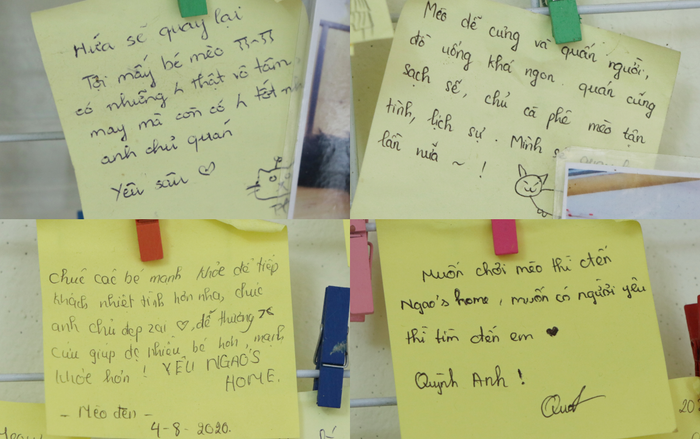 Hứa sẽ quay lại
Tội mấy bé mèo π-π
có những k thật vô tâm
may mà còn có k tốt
anh chủ quán
Yêu sâu ♡
Mèo dễ cưng và quấn người,
đồ uống khá ngon. quán cũng
sạch sẽ, chủ cà phê mèo tận
tình, lịch sự. Mình
lần nữa ~ !
Chúc các bé mạnh khỏe để tiếp
khách nhiệt tình hơn nha, chúc
anh chủ đẹp zai ♡, dễ thương
cưu giúp đc nhiều bé hơn, mạnh
khỏe hơn ! YÊU NGAO'S
HOME.
- Mèo đen -
4-8-2020.
Muốn chơi mèo thì đến
Ngao's home, muốn có người yêu
thì tìm đến em ♥
Quỳnh Anh !